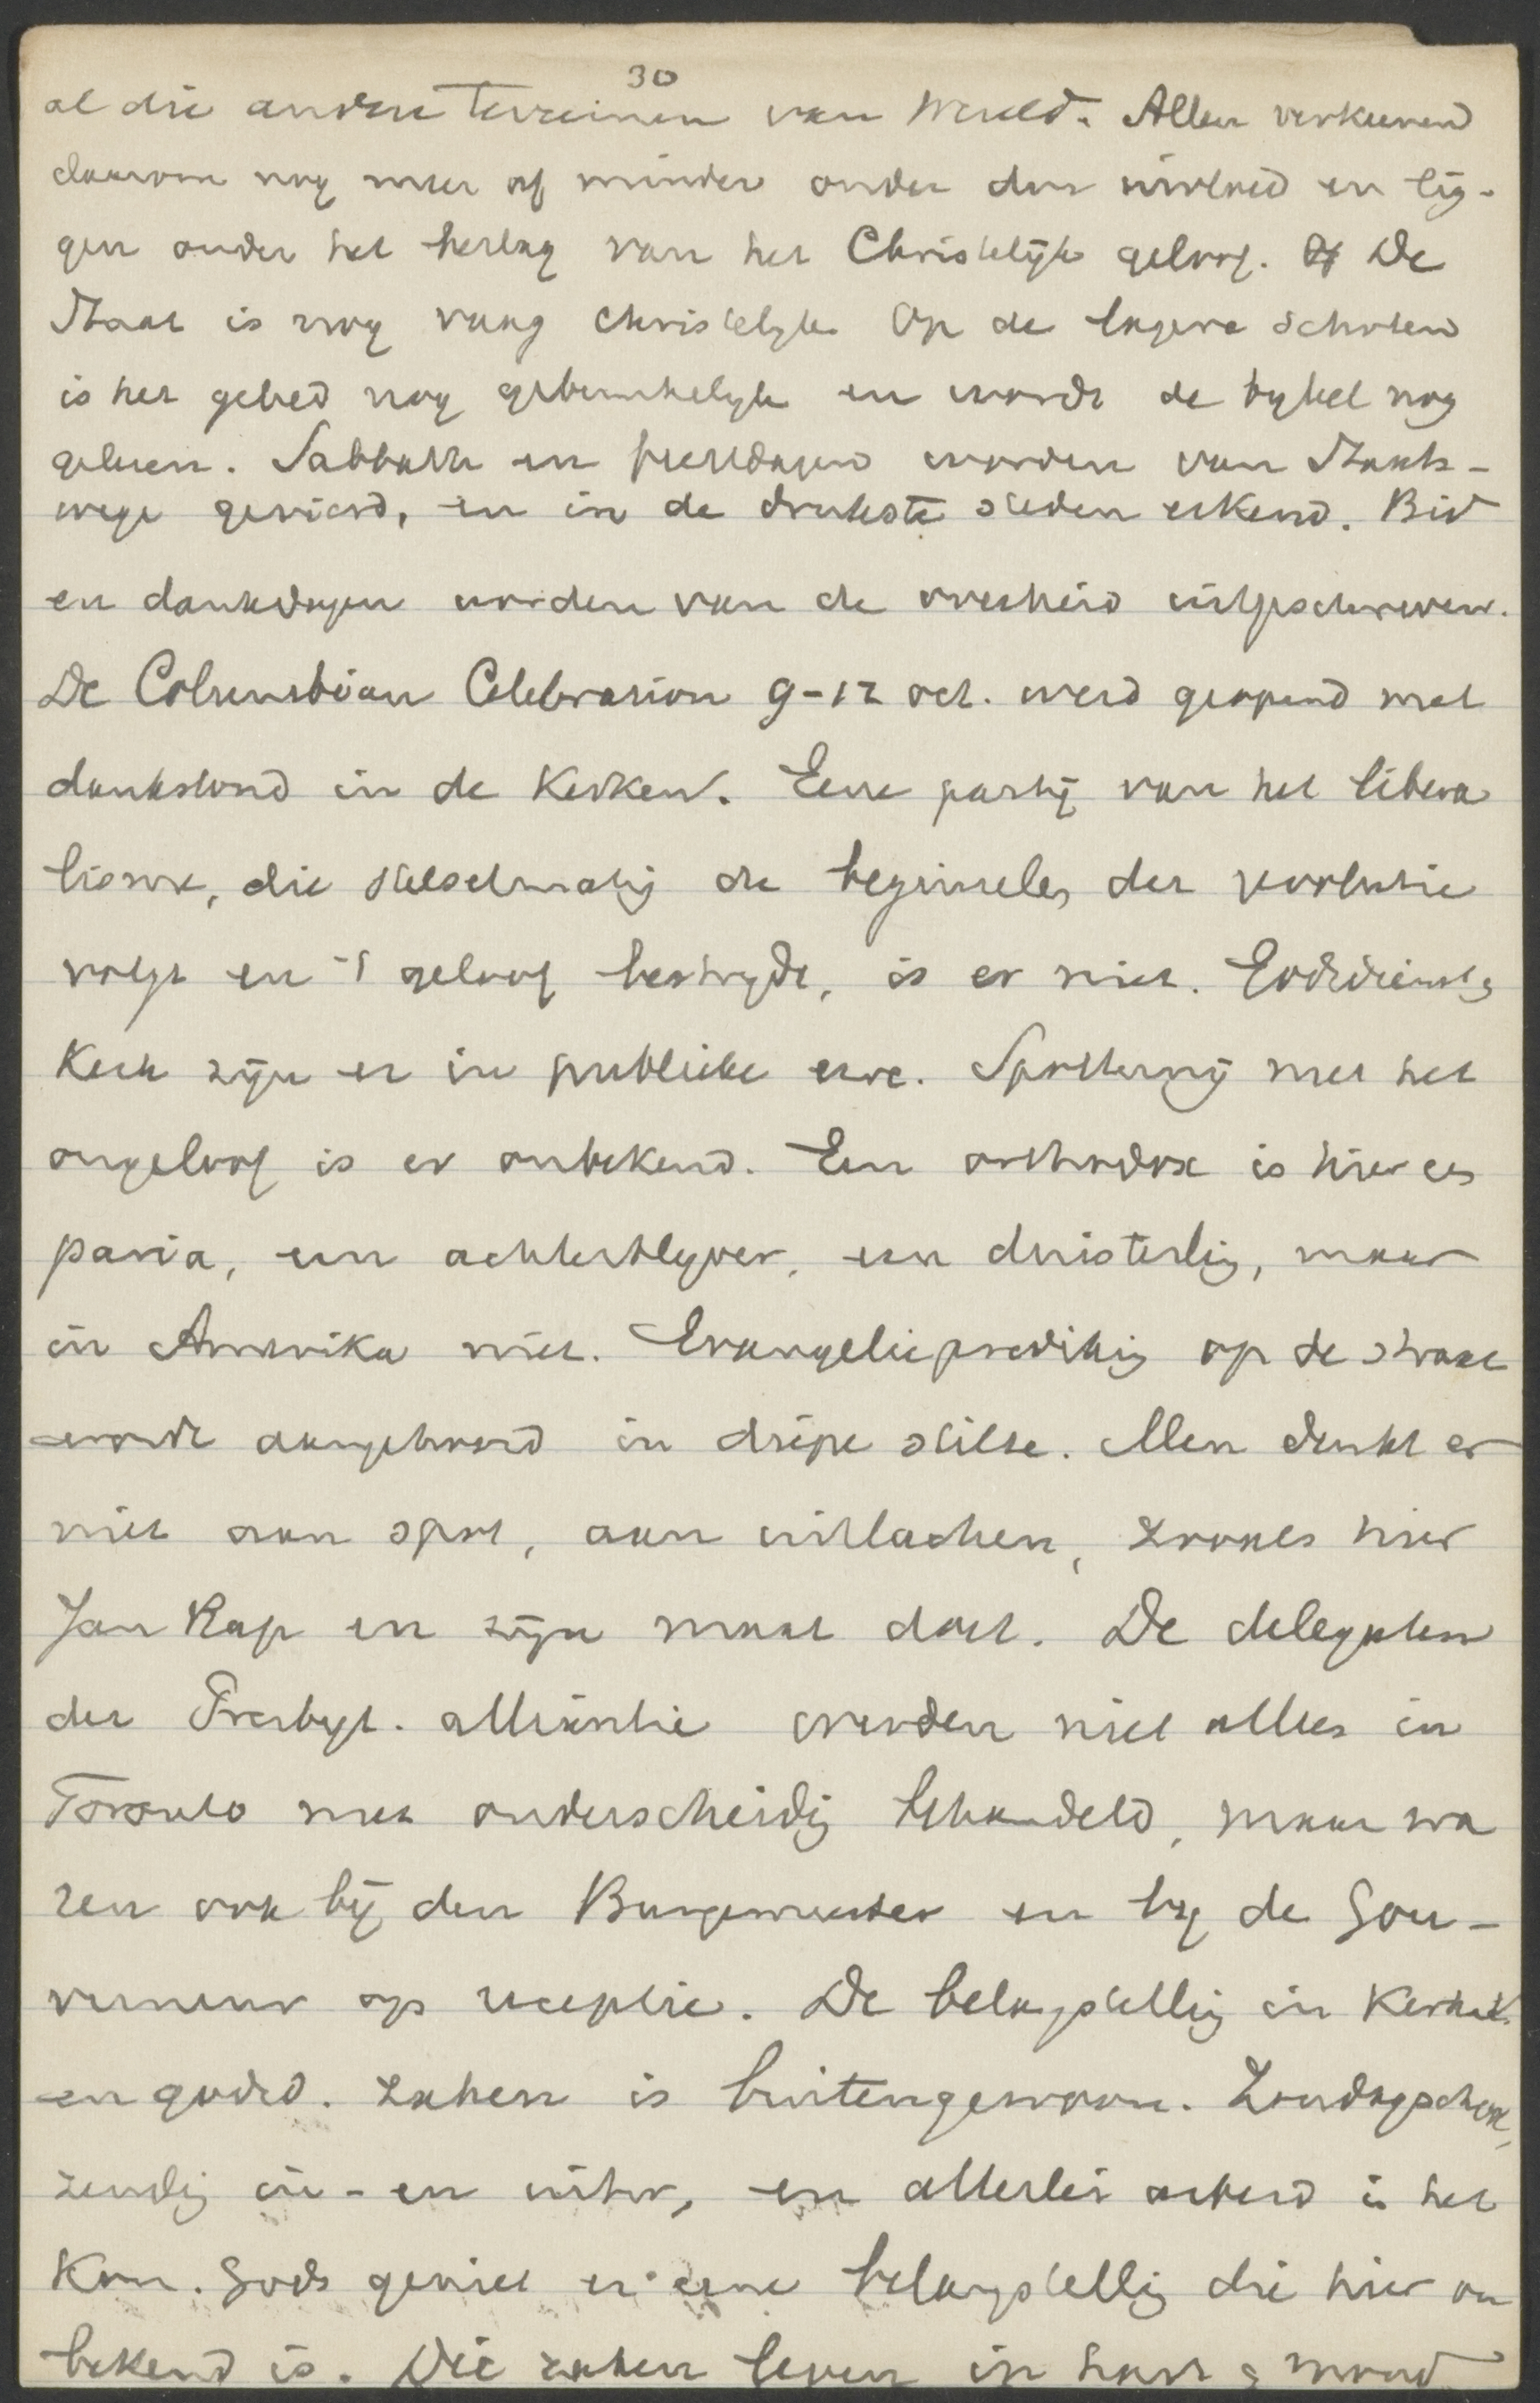 30
al die andere terreinen van wereld. Allen verkeeren
daarom nog meer of minder onder den invloed en lig-
gen onder het beslag van het Christelijk geloof. De
Staat is nog vaag christelyk. Op de lagere scholen
is het gebed nog gebruikelyk en wordt de bybel nog
gelezen. Sabbath en feestdagen worden van Staats-
wege gevierd, en in de drukste steden erkend. Bid
en dankdagen worden van de overheid uitgeschreven.
De Columbian Celebration 9-12 oct. werd geopend met
dankstond in de Kerken. Eene partij van het libera
lisme, die stelselmatig de beginselen der revolutie
volgt en 't geloof bestrydt, is er niet. Godsdienst &
Kerk zijn er in publieke eere. Spotternij met het
ongeloof is er onbekend. Een orthodox is hier een
paria, een achterblyver, een duisterling, maar
in Amerika niet. Evangelieprediking op de straat
wordt aangehoord in diepe stilte. Men denkt er
niet aan spot, aan uitlachen, zooals hier
Jan Rap en zijn maat doet. De delegaten
der Presbyt. alliantie werden niet alleen in
Toronto met onderscheidig behandeld, maar wa
ren ook bij den Burgemeester en by de Gou-
verneur op receptie. De belangstellig in Kerkel.
en godsd. zaken is buitengewoon. Zondagschool,
zendig in- en uitw, en allerlei arbeid i het
Kon. Gods geniet er eene belangstellig die hier on
bekend is. Die zaken leven in hart & mond